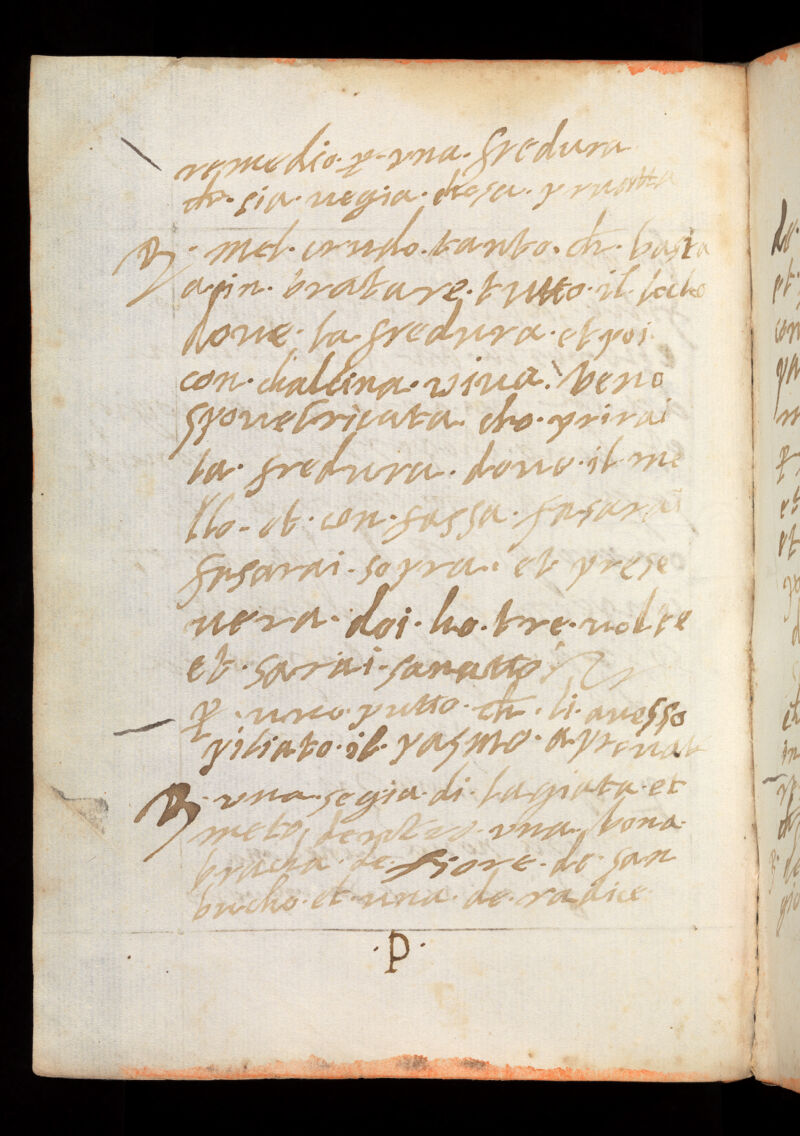 remedio · ꝑ · vna · fredura
che · sia · uegia · chosa · pruatta
℞ · mel · crudo · tanto · ch · basta
apin · bratare · tutto · il locho
doue · la · fredura · et poi ·
con · chalcina · viua · beno
spoueìricata · cho · prirai
la · fredura · doue · il me
llo · et · con · fassa · fasarai
fasarai · sopra · et prese
uera · doi · ho · tre · uolte
et · sarai · sanatto
ꝑ · uno · putto · ch · li · auesso
piliato · il · pasmo · aprouat
℞ · vna · segia · di · lagiata · et
metti dentro · vna · bona ·
bracia · de · fiore · de · san
bucho · et · una · de · radice
· P ·